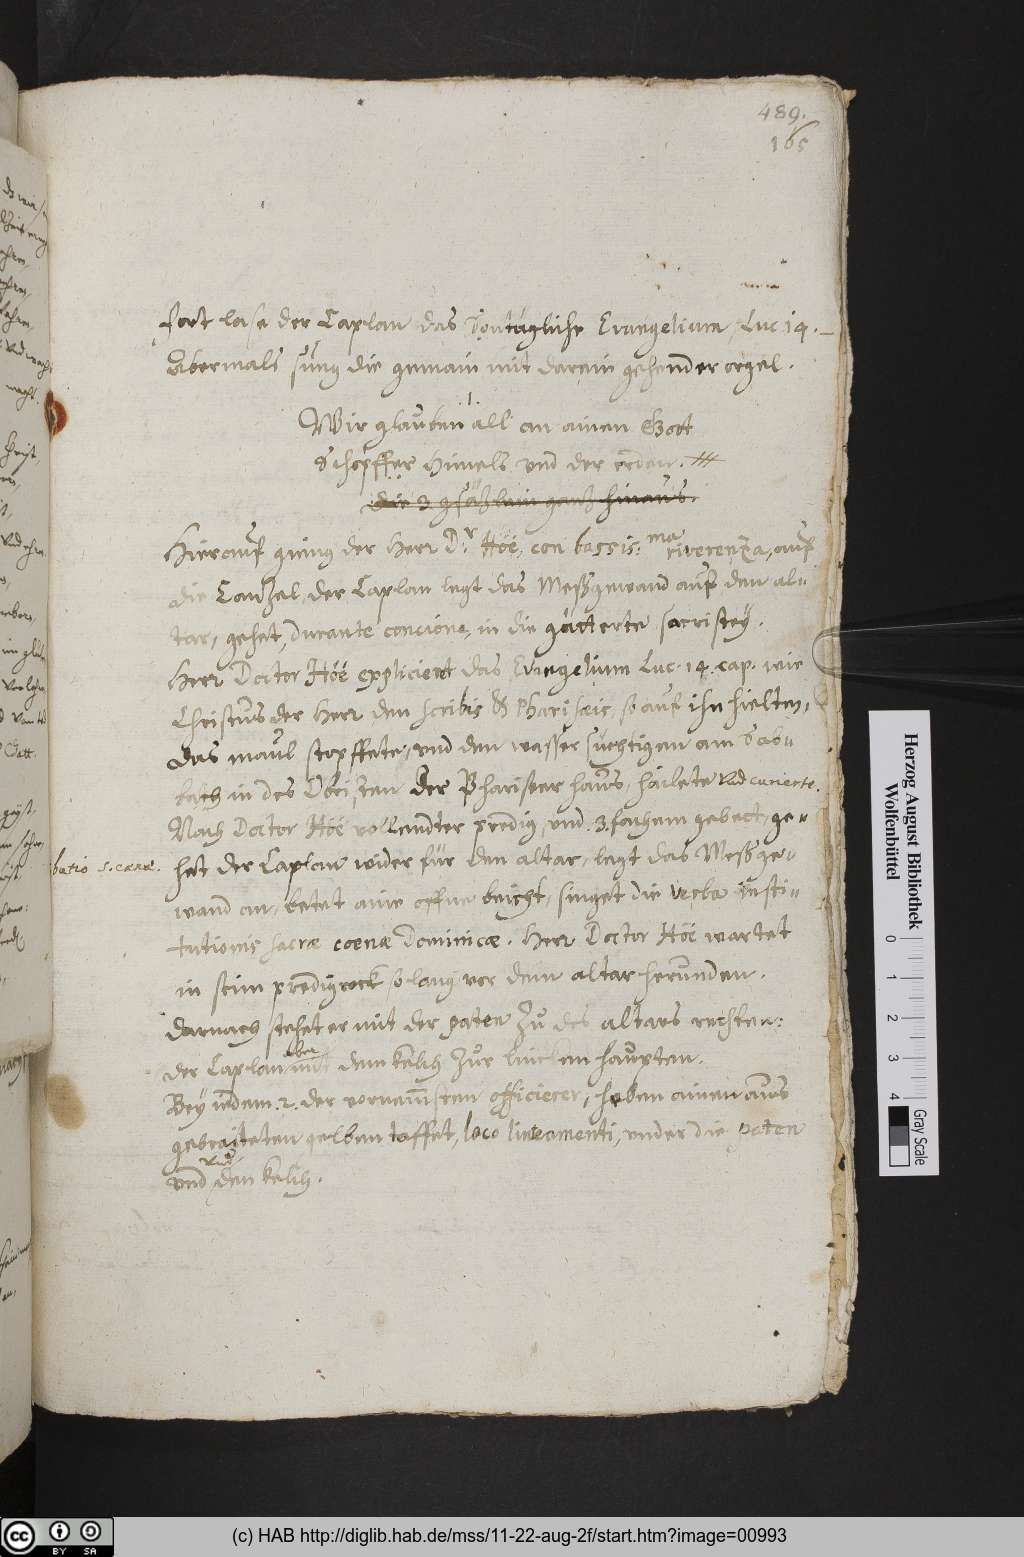 489.
165
fort lase der Caplan das Sontägliche Evangelium, Luc 14.
Abermals sung die gemain mit darein gehender orgel.
1.
Wir glauben all an ainen Gott
Schöpffer Himels und der erden.
die 3 gsäzlain ganz hinaus.
Hierauf gieng der Herr Dr. Höe, con bassis:ma riverenza, auf
die Canzel, der Caplan legt das Meßgewand auf den al-
tar, gehet, durante concione, in die gätterte sacristey.
Herr Doctor Höe expliciert das Evangelium Luc. 14. cap. wie
Christus der Herr den scribis & Pharisæis, so auf ihn hielten,
das maul stopffete, und den wassersüchtigen am Sab-
bath in des Obristen der Phariseer haus, hailete und curierte.
Nach Doctor Höe vollendter predig, und 3.fachem gebeet, ge-
het der Caplan wider für den altar, legt das Meßge-
wand an, betet aine offne beicht, singet die verba insti-
tutionis sacræ coenæ Dominicæ. Herr Doctor Höe wartet
in seim predigrock so lang vor dem altar herunden.
darnach stehet er mit der paten zu des altars rechten:
der Caplan aber mit dem kelch zur lincken haupten.
Bey iedem .2. der vornemsten officierer, heben ainen aus
gebraiteten gelben taffet, loco linteamenti, under die paten
und
und den kelch.
butio s. cænæ.
Herzog August Bibliothek
Wolfenbüttel
0 1 2 3 4
Gray Scale
cc BY SA
(c) HAB http://diglib.hab.de/mss/11-22-aug-2f/start.htm?image=00993